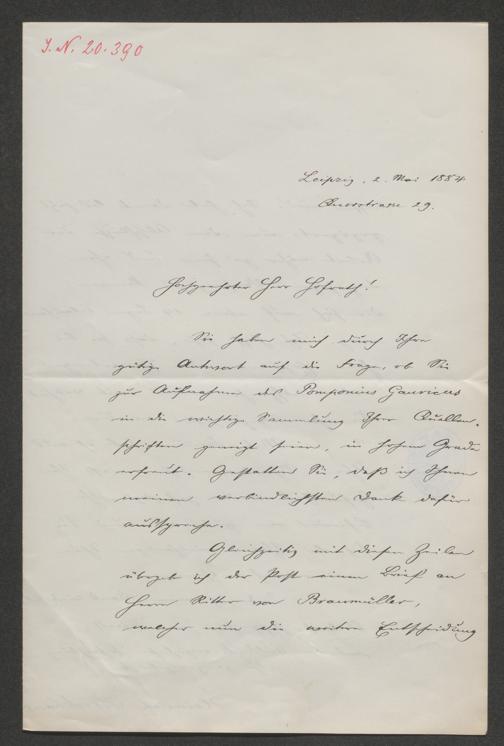 J. N. 20.390
Leipzig, 2. Mai 1884
Querstrasse 29.
Hochgeehrter Herr Hofrath!
Sie haben mich durch Ihre
gütige Antwort auf die Frage, ob Sie
zur Aufnahme des Pomponius Gauricus
in die wichtige Sammlung Ihrer Quellen-
schriften geneigt seien, in hohem Grade
erfreut. Gestatten Sie, daß ich Ihnen
meinen verbindlichsten Dank dafür
ausspreche.
Gleichzeitig mit diesen Zeilen
übergeb ich der Post einen Brief an
Herrn Ritter von Braumüller,
welcher nun die weitere Entscheidung